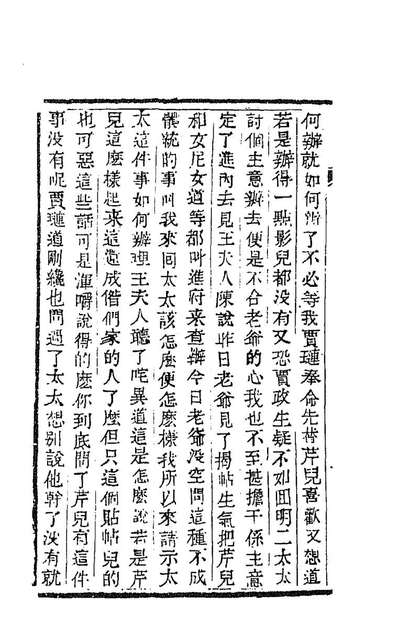 何辦就如何辦了不必等我賈璉奉命先替芹兒喜歡又想道
若是辦得一點影兒都没有又恐賈政生疑不如回明二太太
討個主意辦去便是不合老爺的心我也不至甚擔干係主意
定了進内去見王夫人陳說昨日老爺見了揭帖生氣把芹兒
和女尼女道等都叫進府來查辦今日老爺没空問這種不成
體統的事叫我來回太太該怎麼便怎麼樣我所以來請示太
太這件事如何辦理王夫人聽了咤異道這是怎麼說若是芹
兒這麼樣起來這還成偺們家的人了麼但只這個貼帖兒的
也可惡這些話可是渾嚼說得的麼你到底問了芹兒有這件
事没有呢賈璉道剛纔也問過了太太想别說他幹了没有就